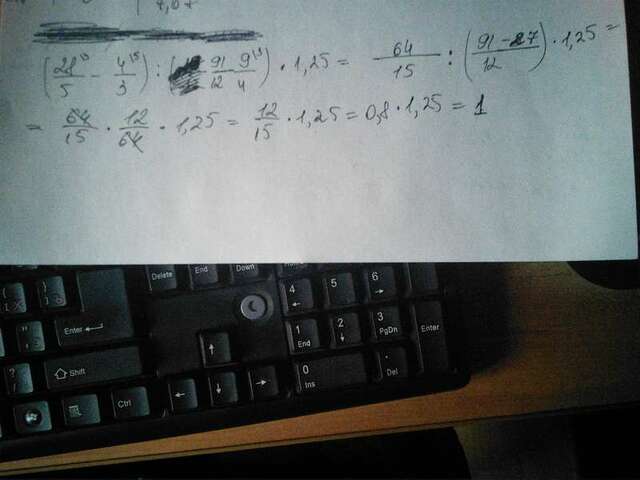 (28/5 ⁽³ - 4/3 ⁽⁵) : (91/12 - 9/4 ⁽³) · 1,25 = 64/15 : (91-27/12) · 1,25 =
= 64/15 · 12/64 · 1,25 = 12/15 · 1,25 = 0,8 · 1,25 = 1
Delete End Down 4 ← 5 6 →
Enter 1 End 2 ↓ 3 PgDn Enter
Shift ↑ 0 Ins . Del
Ctrl ← ↓ →